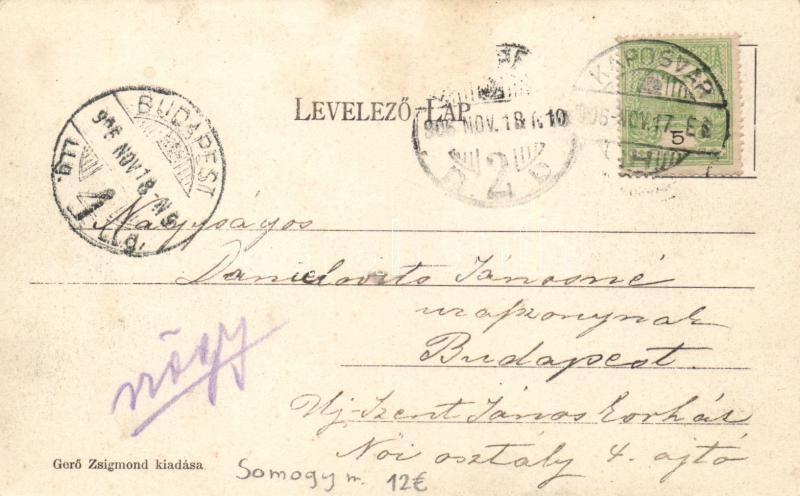 LEVELEZŐ-LAP
KAPOSVÁR
906 NOV. 17. E8
5
906 NOV. 18 10
2
BUDAPEST
906 NOV 18 N9
Nagyságos
Danielovits Jánosné
úrasszonynak
Budapest.
Uj-Szent János Korház
Női osztály 4. ajtó
nőgy
Gerő Zsigmond kiadása
Somogy m. 12€